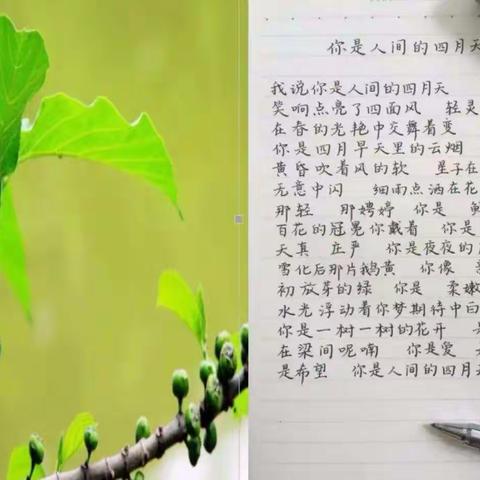 你是人间的四月天
我说你是人间的四月天
笑响点亮了四面风 轻灵
在春的光艳中交舞着变
你是四月早天里的云烟
黄昏吹着风的软 星子在
无意中闪 细雨点洒在花
那轻 那娉婷 你是
百花的冠冕你戴着 你是
天真 庄严 你是夜夜的
雪化后那片鹅黄 你像
初放芽的绿 你是 柔嫩
水光浮动着你梦期待中白
你是一树一树的花开
在梁间呢喃 你是爱
是希望 你是人间的四月天